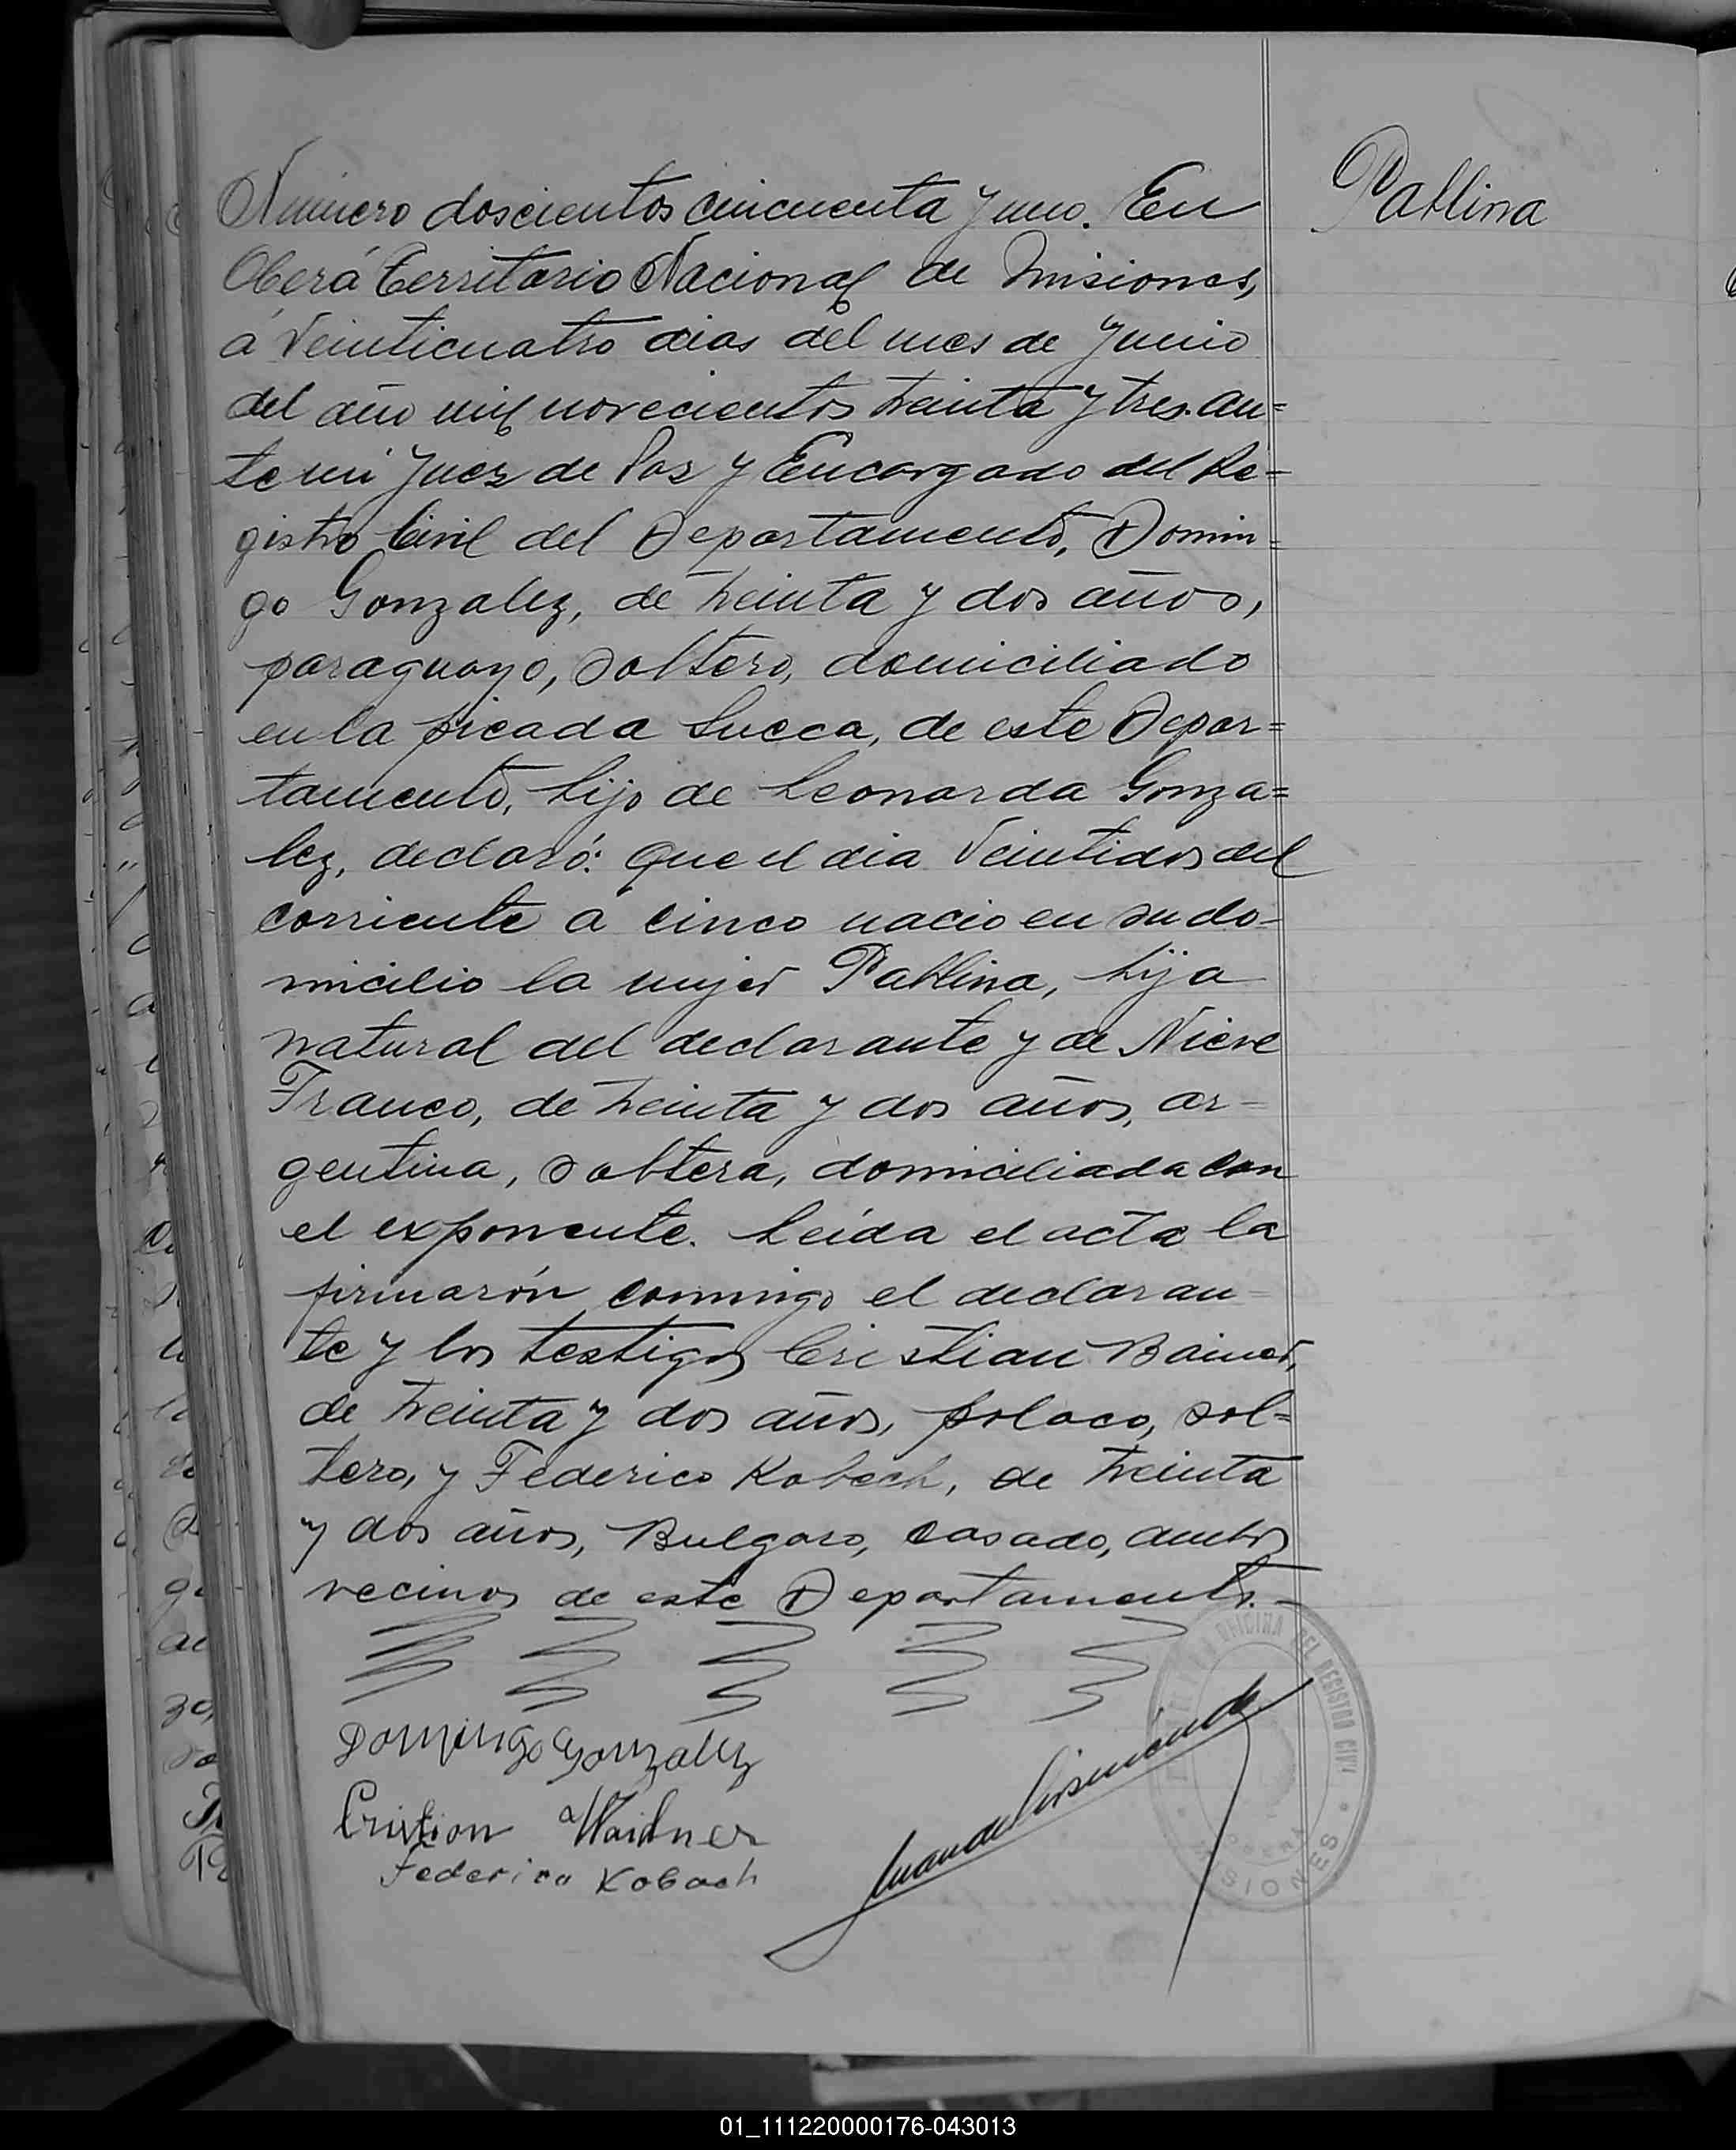 Pablina
Número doscientos cincuenta y uno. En
Oberá Territorio Nacional de Misiones,
á Veinticuatro dias del mes de Junio
del año mil novecientos treinta y tres. an=
te mi Juez de Paz y Encargado del Re=
gistro Civil del Departamento, Domin=
go Gonzalez, de treinta y dos años,
paraguayo, soltero, domiciliado
en la picada Sueca, de este Depar=
tamento, hijo de Leonarda Gonza=
lez, declaró: Que el dia Veintidos del
corriente a cinco nacio en su do-
micilio la mujer Pablina, hija
natural del declarante y de Nieve
Franco, de treinta y dos años, ar-
gentina, soltera, domiciliada con
el exponente. Leida el acta la
firmarón conmigo el declaran-
te y los testigos Cristian Bainer,
de treinta y dos años, polaco, sol=
tero, y Federico Kobach, de treinta
y dos años, Bulgaro, casado, ambos
vecinos de este Departamento.-
Domingo Gonzalez
Cristion Waidner
Federico Kobach
OFICINA DEL REGISTRO CIVIL
OBERA
MISIONES
01_111220000176-043013